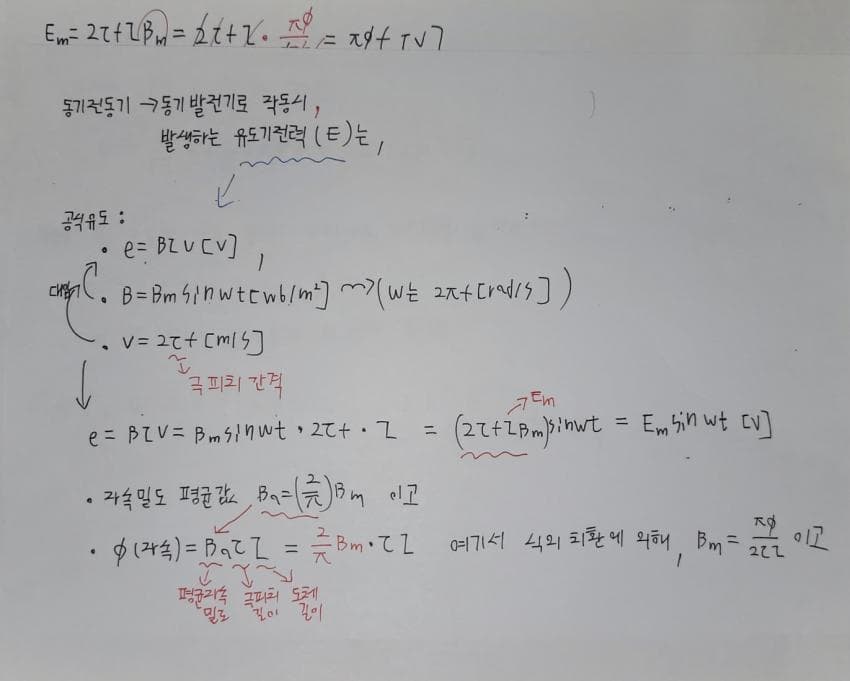 Em = 2τf l Bm = 2τf l · πΦ = πΦf [V]
동기전동기 → 동기 발전기로 작동시,
발생하는 유도기전력 (E)는,
공식유도 :
• e = Blv [V],
대입
• B = Bm sin wt [wb/m²] ⇝ (w는 2πf [rad/s])
• v = 2τf [m/s]
극 피치 간격
Em
e = Blv = Bm sin wt · 2τf · l = (2τf l Bm) sin wt = Em sin wt [V]
• 자속밀도 평균값 Ba = (2/π) Bm 이고
• φ(자속) = Ba τ l = 2/π Bm · τ l 여기서 식의 치환에 의해, Bm = πφ/2τl 이고
평균자속밀도 극피치길이 도체길이